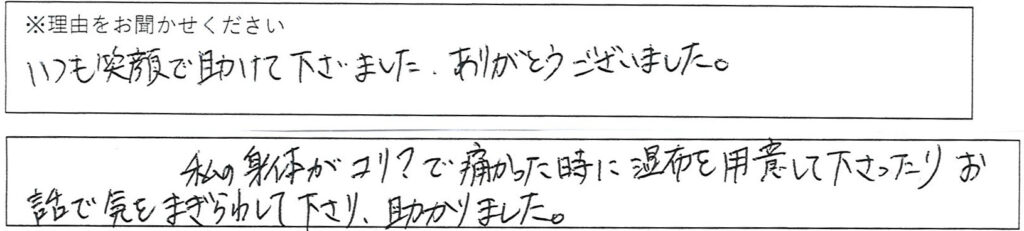 ※理由をお聞かせください
いつも笑顔で助けて下さいました。ありがとうございました。
私の身体がコリ？で痛かった時に湿布を用意して下さったりお
話で気をまぎらわして下さり、助かりました。